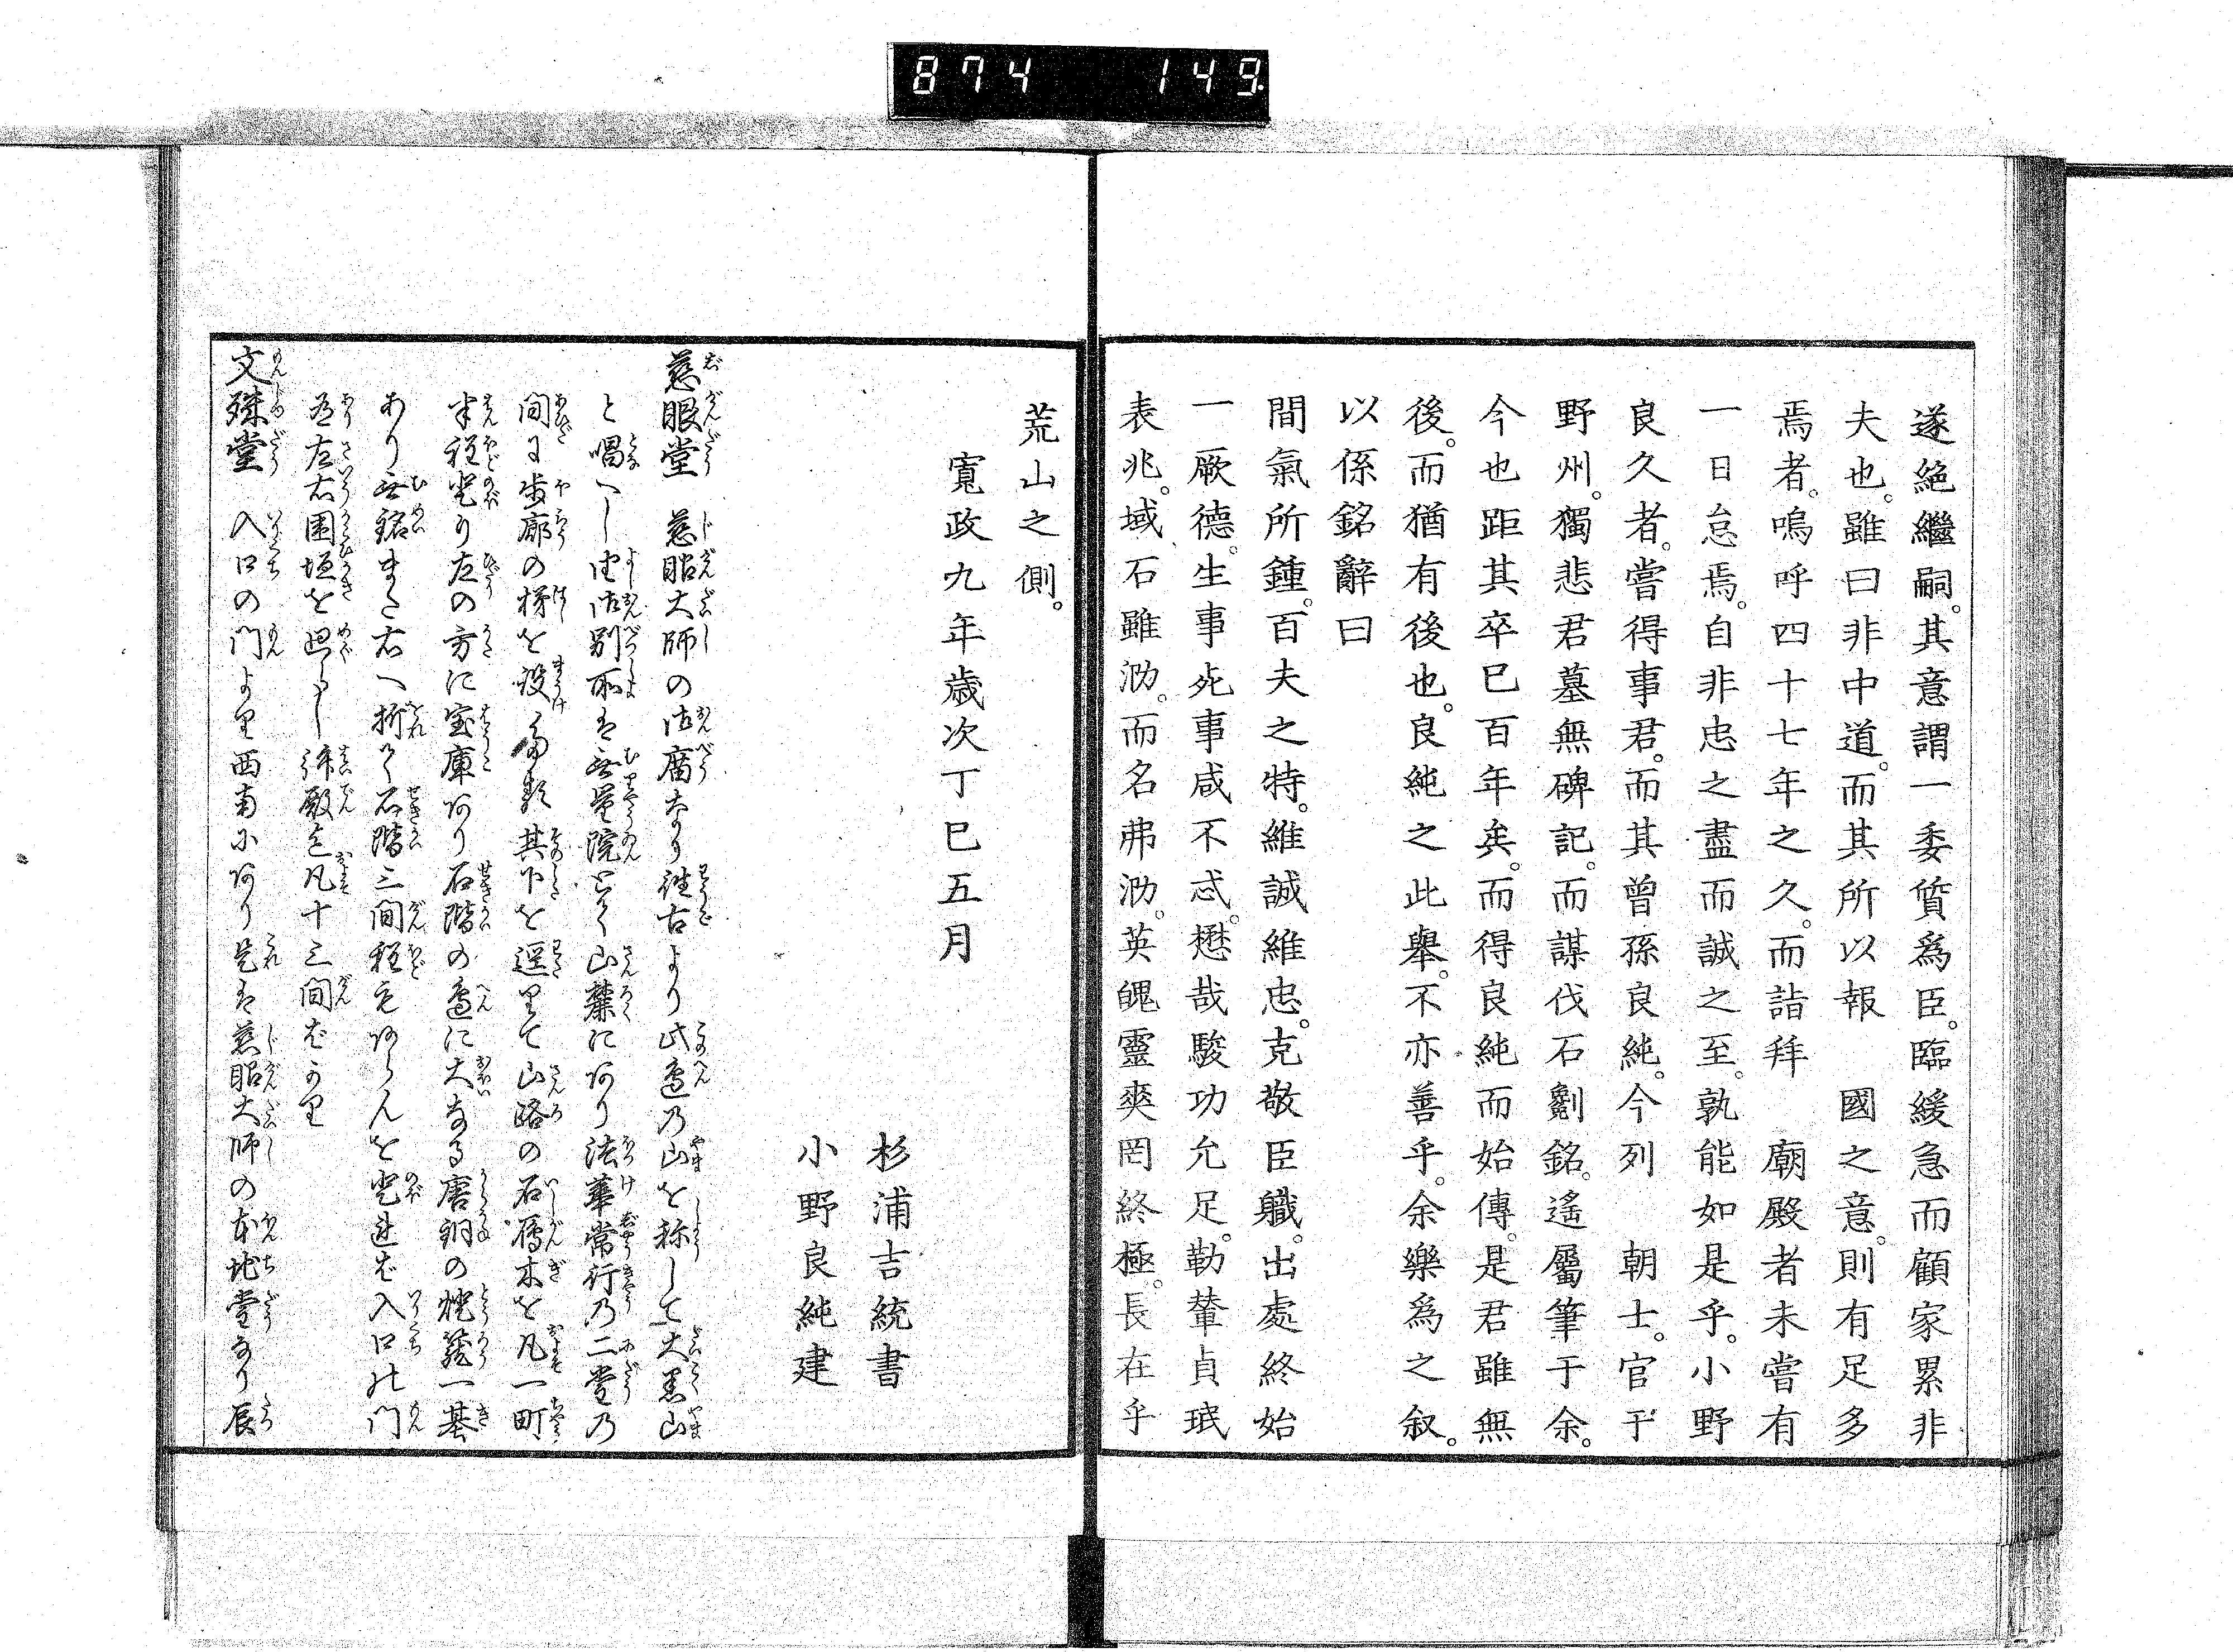 874 149
遂絶繼嗣。其意謂一委質爲臣。臨緩急而顧家累非
夫也。雖曰非中道。而其所以報 國之意。則有足多
焉者。嗚呼四十七年之久。而詣拜 廟殿者未嘗有
一日怠焉。自非忠之盡而誠之至。孰能如是乎。小野
良久者。嘗得事君。而其曾孫良純。今列 朝士。官于
野州。獨悲君墓無碑記。而謀伐石劉銘。遙屬筆于余。
今也距其卒已百年矣。而得良純而始傳。是君雖無
後。而猶有後也。良純之此舉。不亦善乎。余樂爲之叙。
以係銘辭曰
間氣所鍾。百夫之特。維誠維忠。克敬臣職。出處終始
一厥德。生事死事咸不忒。懋哉駿功允足。勒輦貞珉
表兆。域石雖泐。而名弗泐。英魄靈爽罔終極。長在乎
荒山之側。
寛政九年歳次丁巳五月
杉浦吉統書
小野良純建
慈眼堂 慈眼大師の御廟なり往古より此邊乃山を称して大黒山
と唱へし由御別所を無量院とて山麓にあり法華常行乃二堂乃
間に歩廊の梯を設たり其下を逕りて山路の石雁木を凡一町
半程登り左の方に宝庫あり石階の邊に大なる唐銅の燈籠一基
あり無銘また右へ折て石階三間程もあらんを登れば入口の門
有左右囲垣を廻らし拝殿迄凡十三間ばかり
文殊堂 入口の門より西南にあり是を慈眼大師の本地堂なり辰